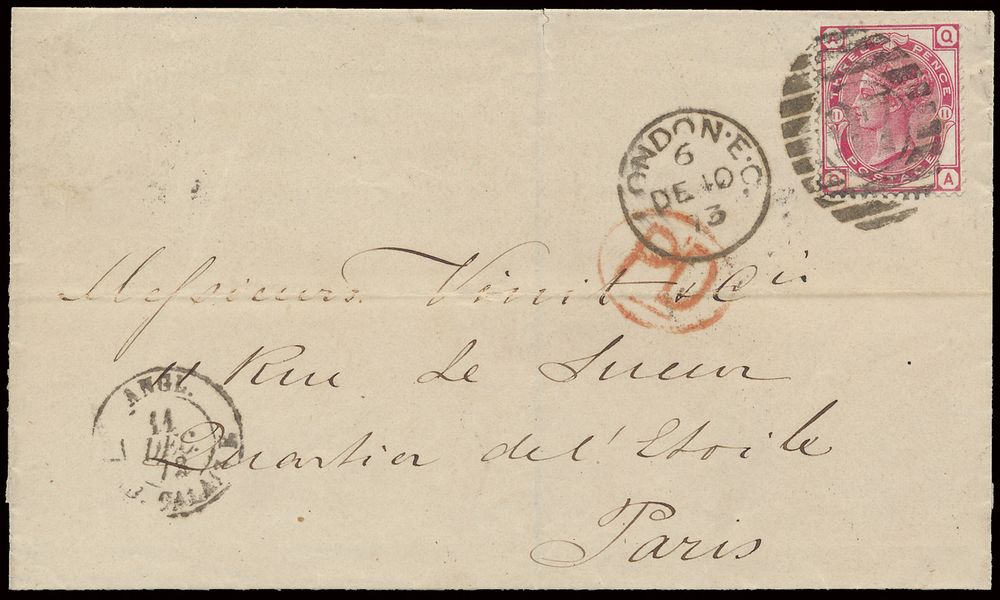 A Q
THREE PENCE
11 11
POSTAGE
Q A
LONDON·E.C.
6
DE 10
73
PD
Messieurs Vinit & Cie
11 Rue Le Sueur
Quartier de l'Etoile
Paris
ANGL.
11
DEC.
CALAIS